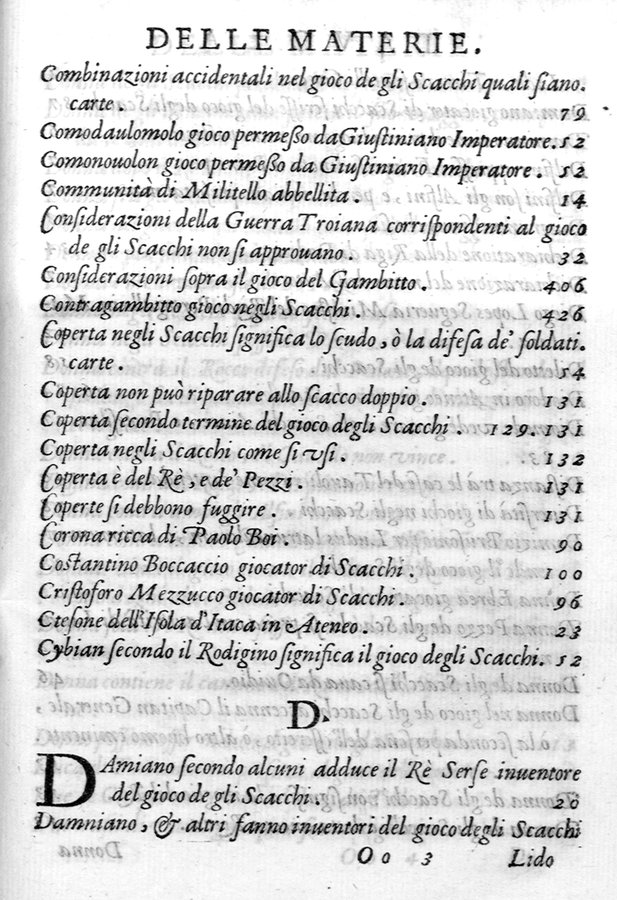 DELLE MATERIE.
Combinazioni accidentali nel gioco de gli Scacchi quali ſiano.
carte. 79
Comodaulomolo gioco permeßo da Giuſtiniano Imperatore. 52
Comonouolon gioco permeßo da Giuſtiniano Imperatore. 52
Communità di Militello abbellita. 14
Conſiderazioni della Guerra Troiana corriſpondenti al gioco
de gli Scacchi non ſi approuano. 32
Conſiderazioni ſopra il gioco del Gambitto. 406
Contragambitto gioco negli Scacchi. 426
Coperta negli Scacchi ſignifica lo ſcudo, ò la difeſa de' ſoldati.
carte. 54
Coperta non può riparare allo ſcacco doppio. 131
Coperta ſecondo termine del gioco degli Scacchi. 129. 131
Coperta negli Scacchi come ſi vſi. 132
Coperta è del Rè, e de' Pezzi. 131
Coperte ſi debbono fuggire. 131
Corona ricca di Paolo Boi. 90
Coſtantino Boccaccio giocator di Scacchi. 100
Criſtoforo Mezzucco giocator di Scacchi. 96
Cteſone dell'Iſola d'Itaca in Ateneo. 23
Cybian ſecondo il Rodigino ſignifica il gioco degli Scacchi. 52
D.
DAmiano ſecondo alcuni adduce il Rè Serſe inuentore
del gioco de gli Scacchi. 20
Damniano, & altri fanno inuentori del gioco degli Scacchi
Oo 3 Lido